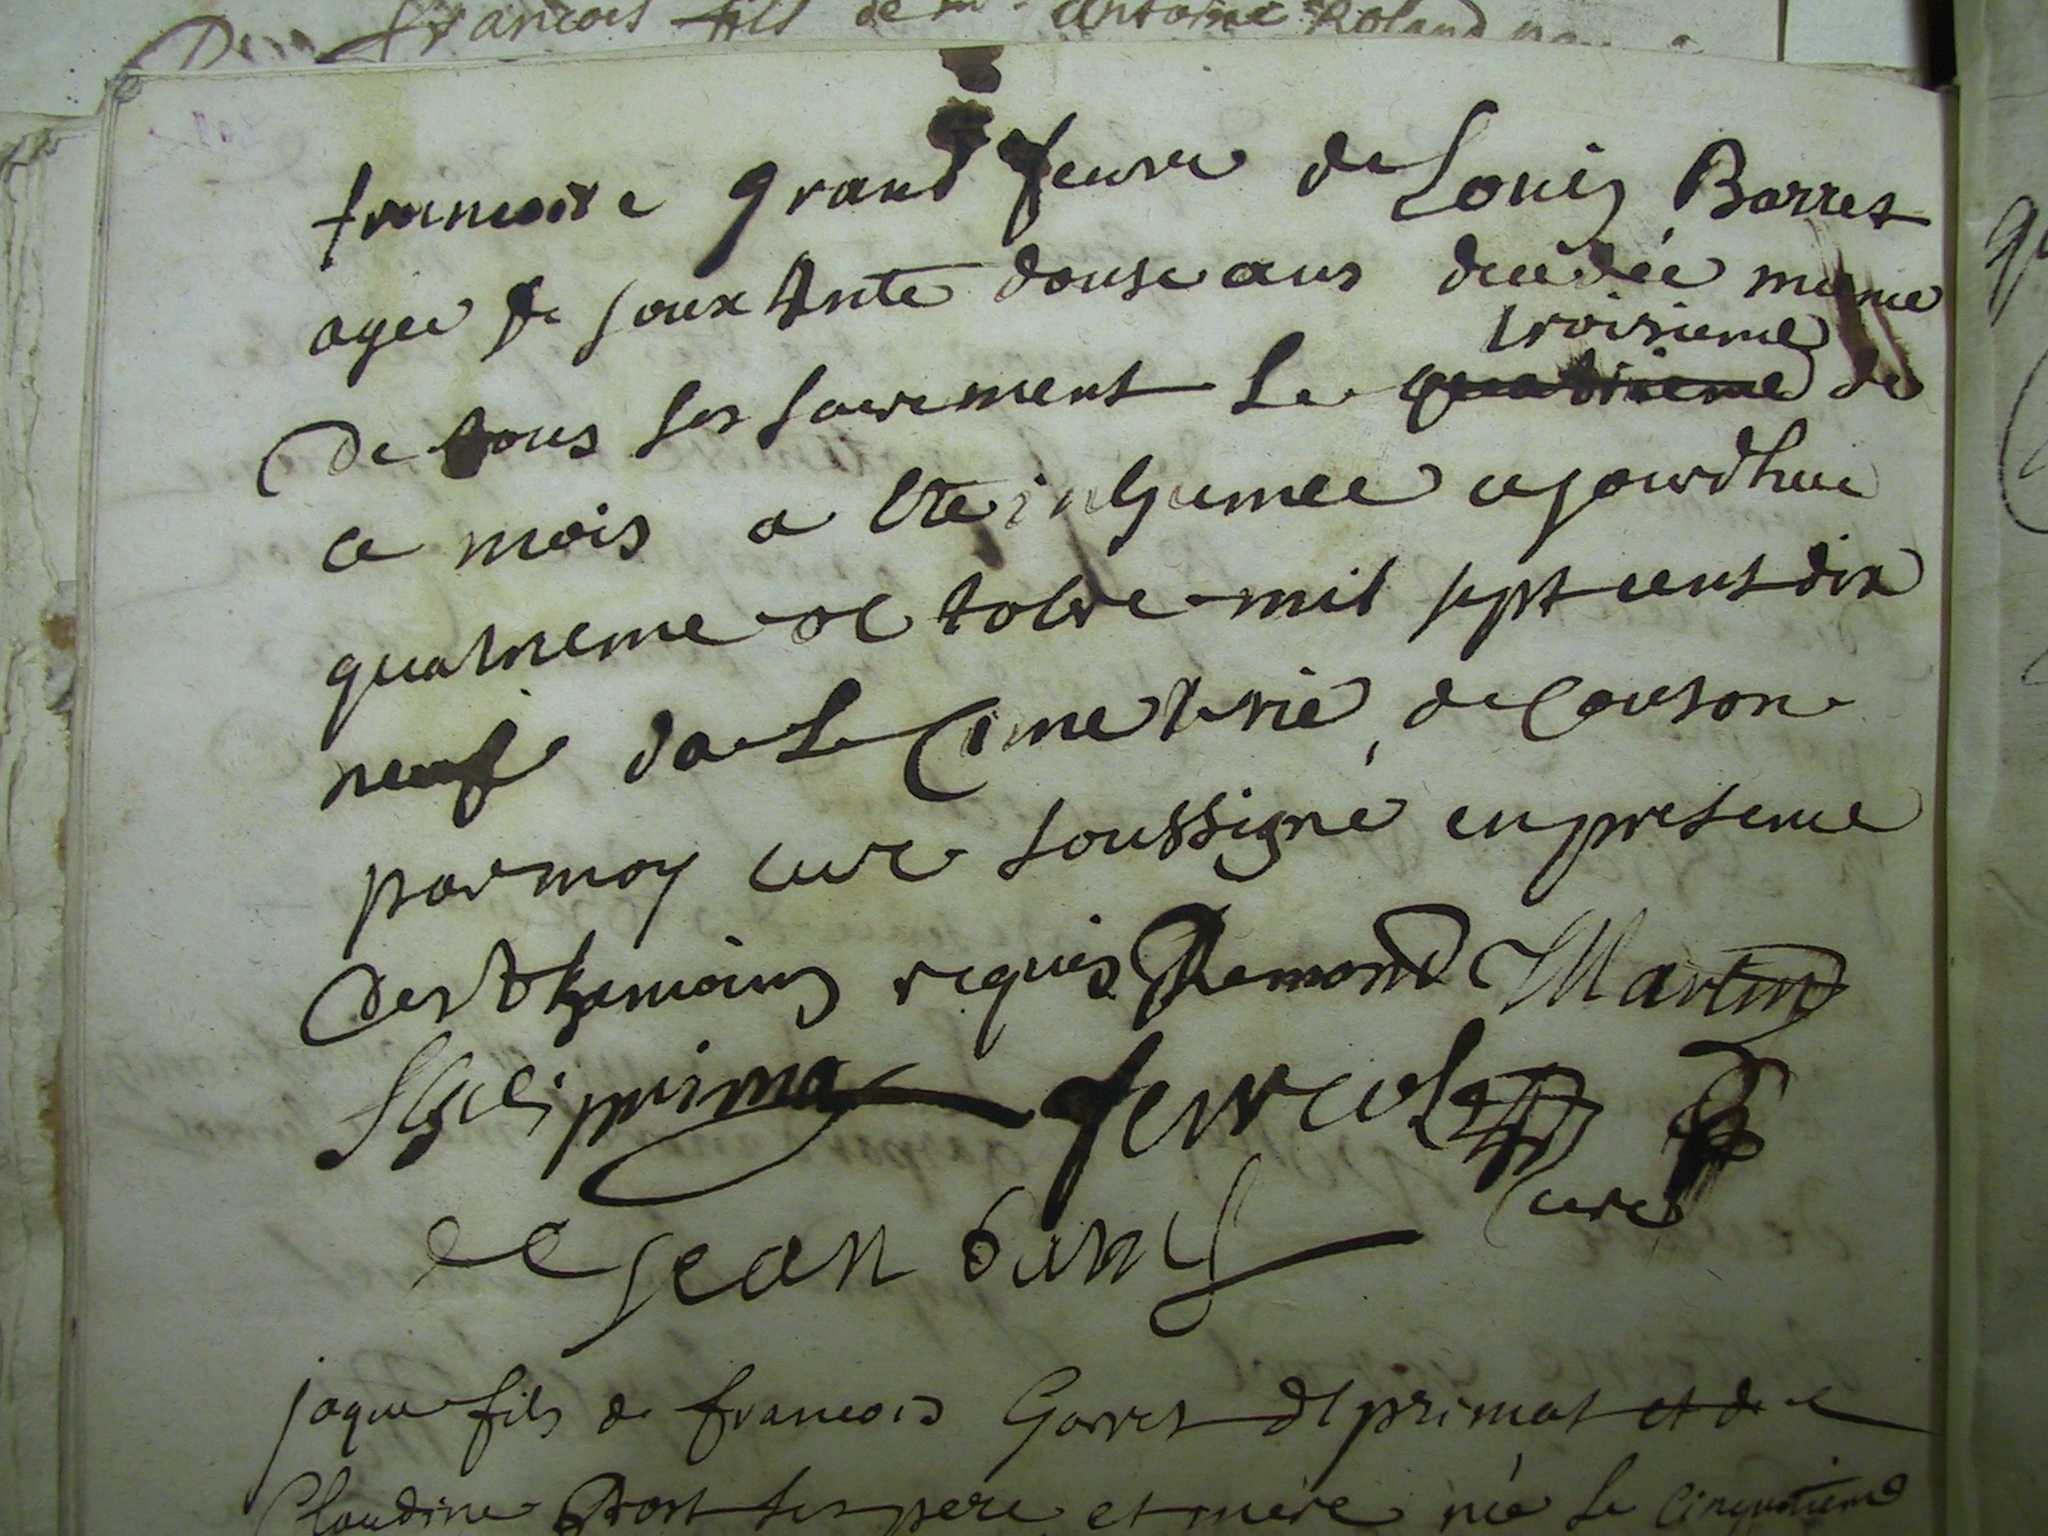 francois fils de mr antoine Roland
francoise grand feuve de Louis Barret
agee de soixante douse ans decedée munie
troisieme
de tous ses sacrement Le quatrieme de
ce mois a ete inhumee cejourdhuie
quatrieme octobre mil sept cent dix
neuf da le Cimetierie de Couson
par moy curé soussigné en presence
des thsemoins requis Remond Martin
prima
curé
Jean
jaque fils de francois Garret di primat et de
Claudine Prost ses pere et mere née le Cinquieme